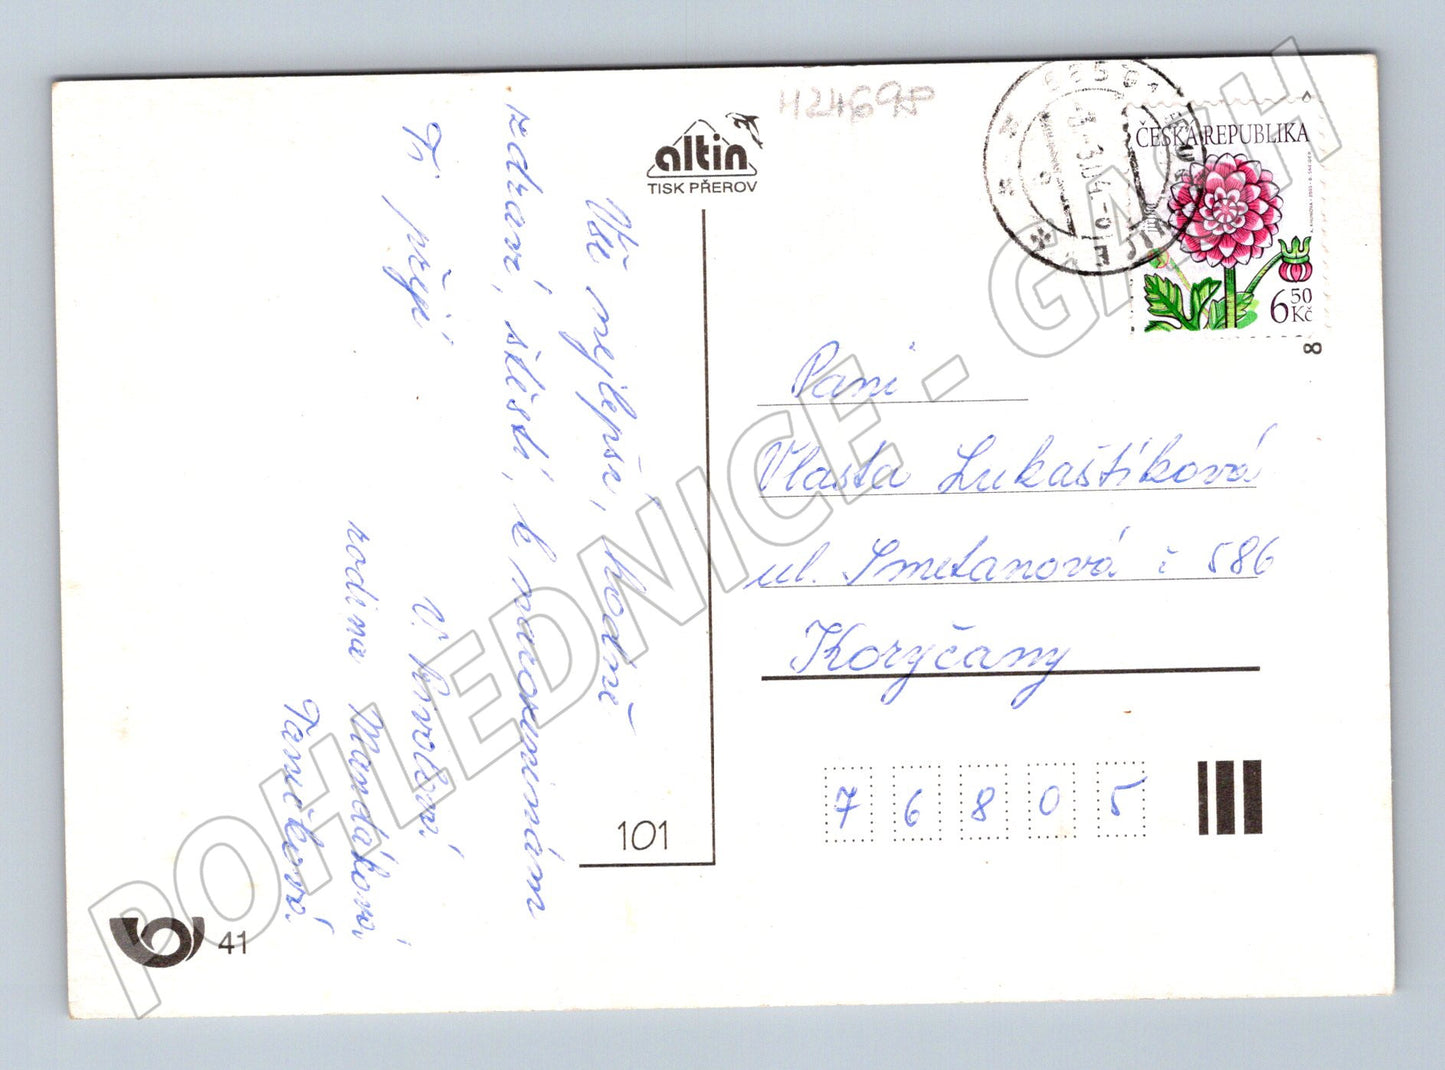 H2469P
altin
TISK PŘEROV
ČESKÁ REPUBLIKA
6 50 Kč
8
Vše nejlepší, hodně
zdraví, štěstí, k narozeninám
Ti přejí
rodina Mandákovi
Paní
Vlasta Lukaštíková
ul. Smetanová č 586
Koryčany
76805
101
41
POHLEDNICE - GACH